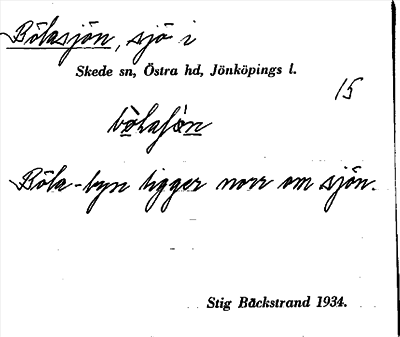 Bölasjön, sjö i
Skede sn, Östra hd, Jönköpings l.
15
Böla-byn ligger norr om sjön.
Stig Bäckstrand 1934.